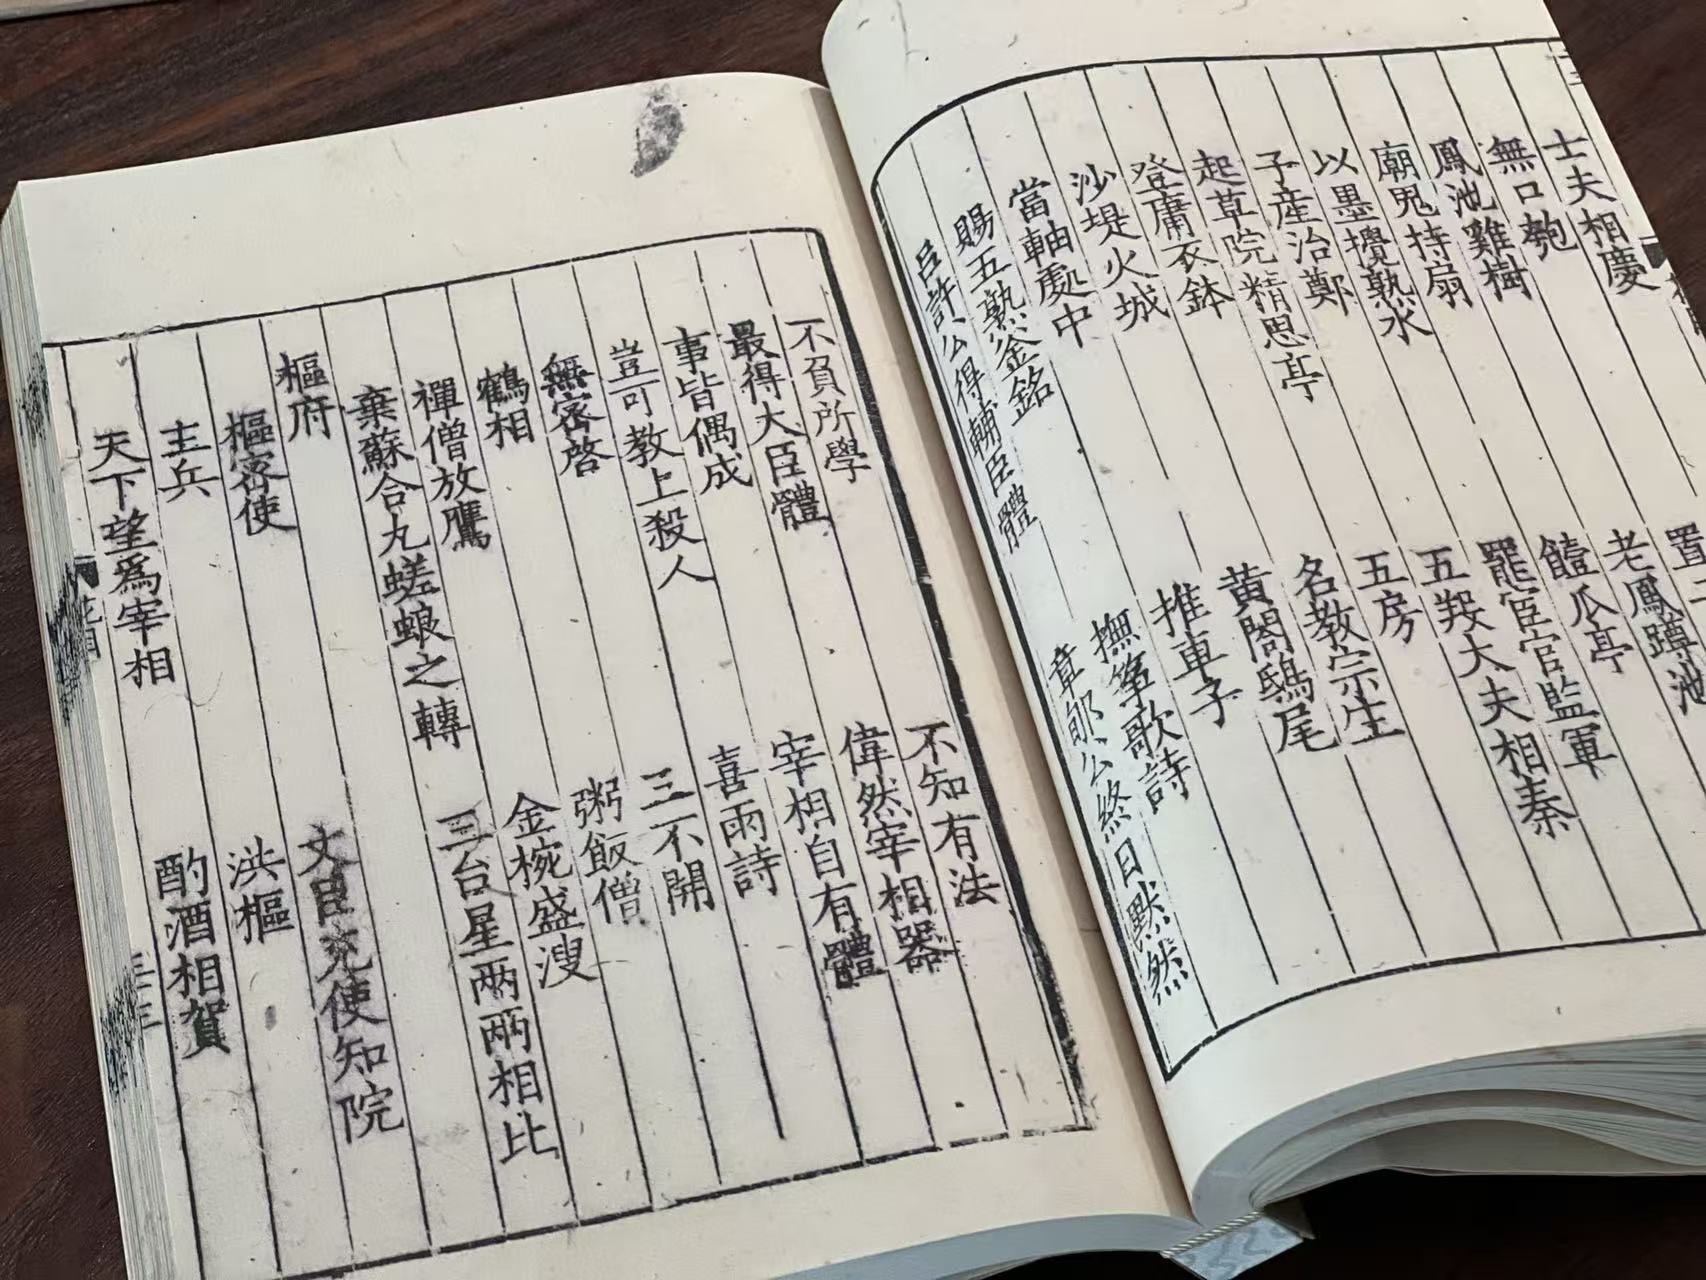 士夫相慶
無口匏
置二
鳳池雞樹
老鳳蹲池
廟鬼持扇
饐瓜亭
以墨攪熟水
罷宦官監軍
子產治鄭
五羖大夫相秦
起草院精思亭
五房
登庸衣鉢
名教宗生
沙堤火城
黃閤鴟尾
當軸處中
推車子
賜五熟釜銘
撫箏歌詩
呂許公得輔臣體
章郇公終日默然
不負所學
不知有法
最得大臣體
偉然宰相器
事皆偶成
宰相自有體
豈可教上殺人
喜雨詩
無密啓
三不開
鶴相
粥飯僧
禪僧放鷹
金椀盛溲
棄蘇合丸蜣蜋之轉
三台星兩兩相比
樞府
樞密使
文臣充使知院
主兵
洪樞
天下望爲宰相
酌酒相賀
三三